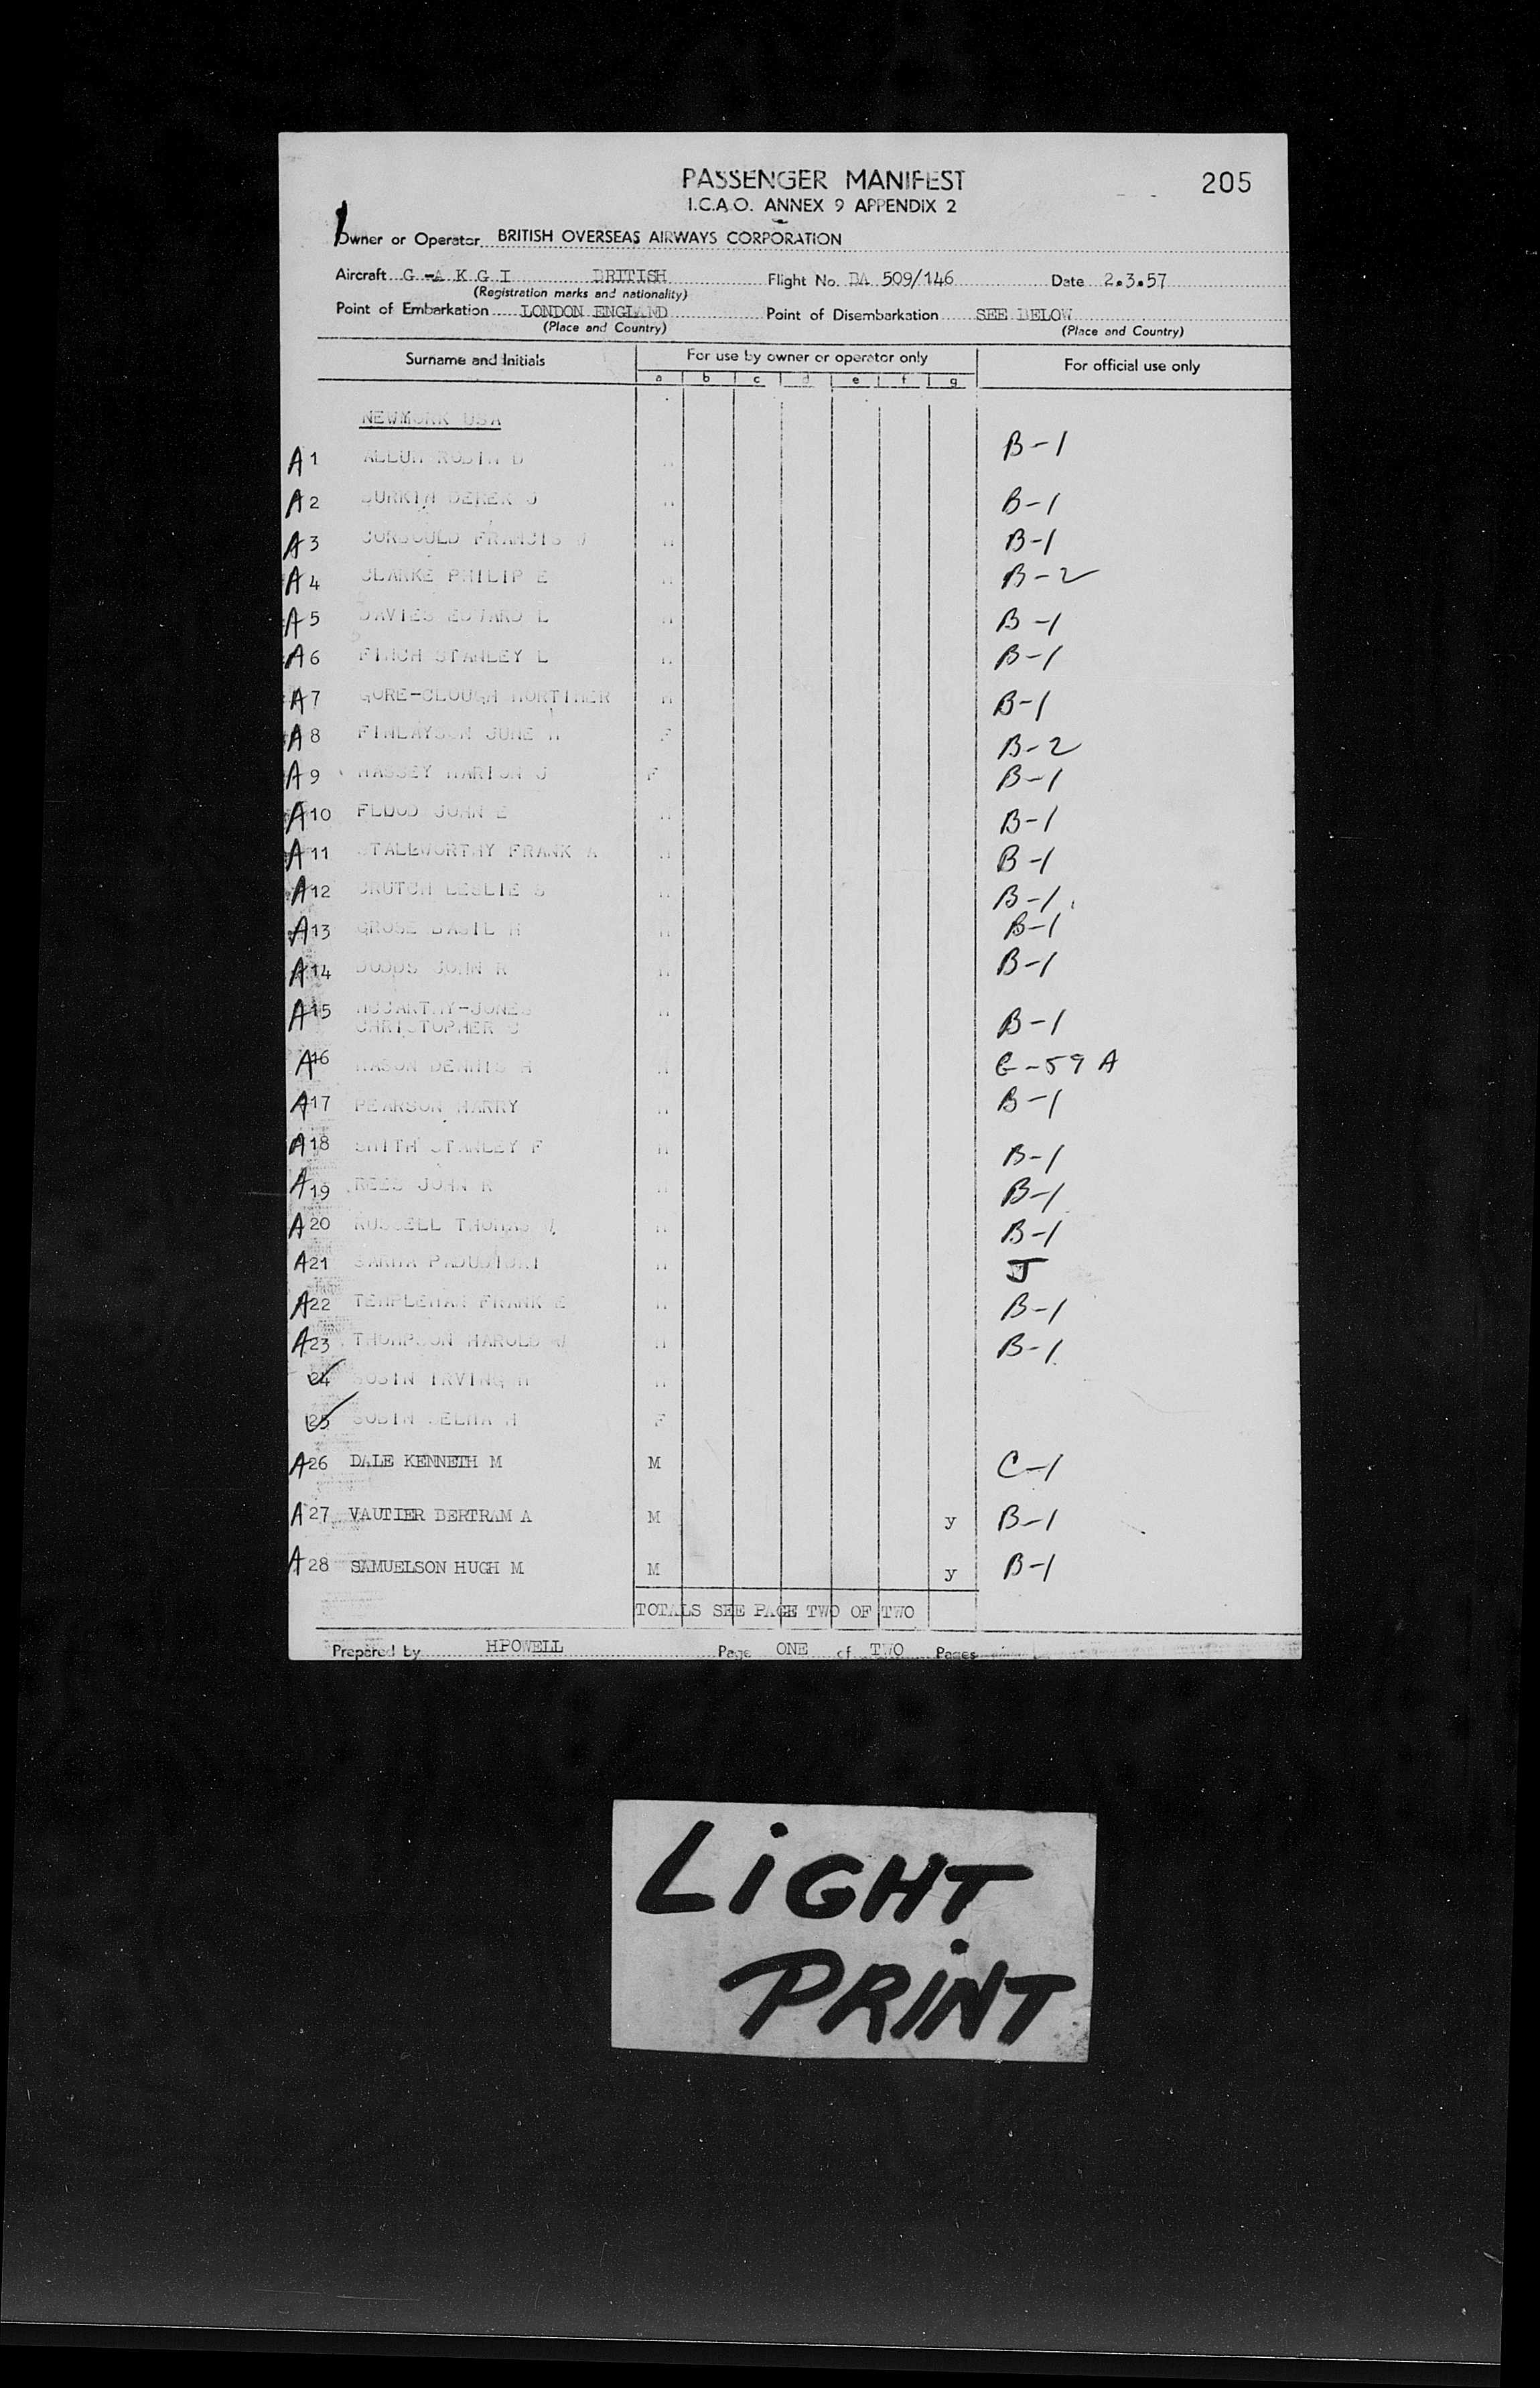 PASSENGER MANIFEST 205
I.C.A.O. ANNEX 9 APPENDIX 2
Owner or Operator BRITISH OVERSEAS AIRWAYS CORPORATION
Aircraft G-A K G I BRITISH Flight No. BA 509/146 Date 2.3.57
(Registration marks and nationality)
Point of Embarkation LONDON ENGLAND Point of Disembarkation SEE BELOW
(Place and Country) (Place and Country)
Surname and Initials For use by owner or operator only For official use only
a b c d e f g
NEWYORK USA
A 1 ALLUM ROBIN D B-1
A 2 DEREK J B-1
A 3 FRANCIS W B-1
A 4 CLARKE PHILIP E B-2
A 5 DAVIES EDWARD L B-1
A 6 FINCH STANLEY L B-1
A 7 GORE-CLOUGH MORTIMER M B-1
A 8 FINLAYSON JUNE F B-2
A 9 MASSEY MARION J F B-1
A 10 FLOOD JOHN E B-1
A 11 STALLWORTHY FRANK A B-1
A 12 CRUTCH LESLIE S B-1
A 13 GROSE BASIL H B-1
A 14 DODDS JOHN R B-1
A 15 MCCARTHY-JONES
CHRISTOPHER C B-1
A 16 MASON DENNIS H G-59 A
A 17 PEARSON HARRY B-1
A 18 SMITH STANLEY F B-1
A 19 REES JOHN R B-1
A 20 RUSSELL THOMAS W B-1
A 21 SARMA J
A 22 TEMPLEMAN FRANK E B-1
A 23 THOMPSON HAROLD W B-1
24 IRVING
25 F
A 26 DALE KENNETH M M C-1
A 27 VAUTIER BERTRAM A M y B-1
A 28 SAMUELSON HUGH M M y B-1
TOTALS SEE PAGE TWO OF TWO
Prepared by HPOWELL Page ONE of TWO Pages
LIGHT
PRINT